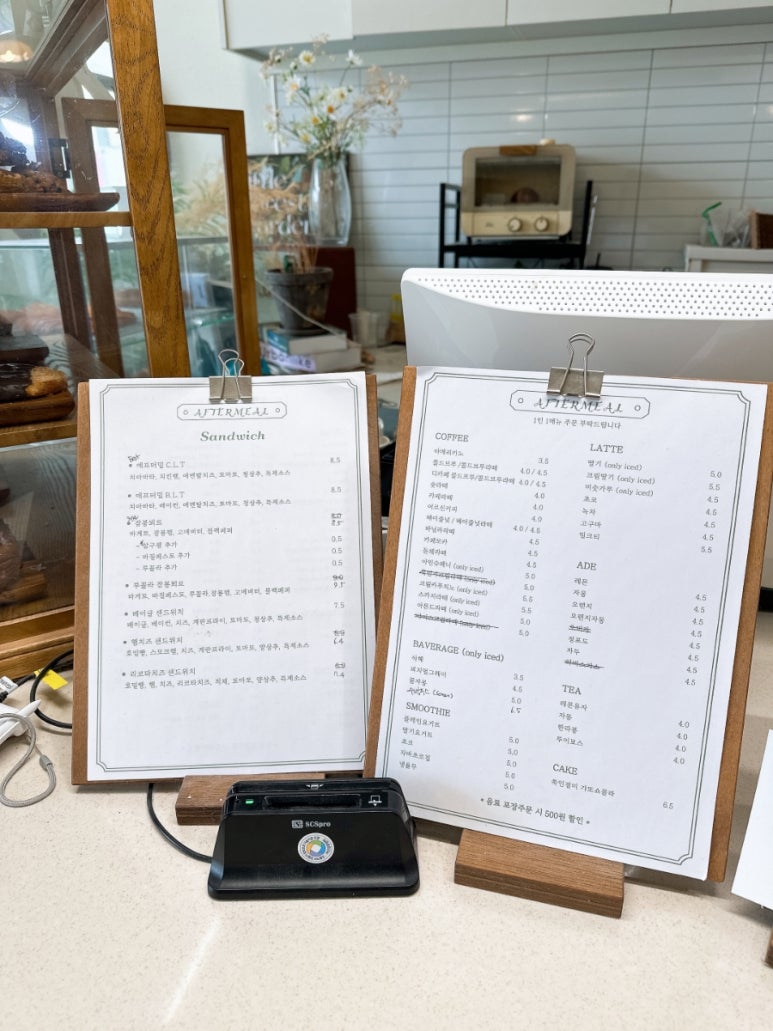 AFTERMEAL
Sandwich
애프터밀 C.L.T 8.5
치아바타, 치킨햄, 에멘탈치즈, 토마토, 청상추, 특제소스
애프터밀 B.L.T 8.5
치아바타, 베이컨, 에멘탈치즈, 토마토, 청상추, 특제소스
잠봉뵈르
바게트, 잠봉햄, 고메버터, 블랙페퍼
추가 0.5
- 바질페스토 추가 0.5
- 루꼴라 추가 0.5
루꼴라 잠봉뵈르
바게트, 바질페스토, 루꼴라, 잠봉햄, 고메버터, 블랙페퍼
베이글 샌드위치 7.5
베이글, 베이컨, 치즈, 계란프라이, 토마토, 청상추, 특제소스
햄치즈 샌드위치 6.4
호밀빵, 스모크햄, 치즈, 계란프라이, 토마토, 양상추, 특제소스
리코타치즈 샌드위치
호밀빵, 햄, 치즈, 리코타치즈, 적채, 토마토, 양상추, 특제소스
AFTERMEAL
1인 1메뉴 주문 부탁드립니다
COFFEE
아메리카노 3.5
콜드브루/콜드브루라떼 4.0 / 4.5
디카페 콜드브루/콜드브루라떼 4.0 / 4.5
솔라떼 4.0
카페라떼 4.0
어르신커피 4.0
헤이즐넛 / 헤이즐넛라떼 4.0 / 4.5
바닐라라떼 4.5
카페모카 4.5
돌체라떼 4.5
아인슈페너 (only iced) 5.0
크림카푸치노 (only iced) 5.0
스카치라떼 (only iced) 5.5
아몬드라떼 (only iced) 5.5
BAVERAGE (only iced)
식혜 3.5
피치얼그레이 4.5
꿀자몽 5.0
6.5
SMOOTHIE
플레인요거트 5.0
딸기요거트 5.0
초코 5.0
자바초코칩 5.0
냉동두 5.0
LATTE
딸기 (only iced) 5.0
크림딸기 (only iced) 5.5
미숫가루 (only iced) 4.5
초코 4.5
녹차 4.5
고구마 4.5
밀크티 5.5
ADE
레몬 4.5
자몽 4.5
오렌지 4.5
오렌지자몽 4.5
청포도 4.5
자두 4.5
TEA
레몬유자 4.0
자몽 4.0
한라봉 4.0
루이보스 4.0
CAKE
쑥인절미 가또쇼콜라 6.5
* 음료 포장주문 시 500원 할인 *
SCSpro